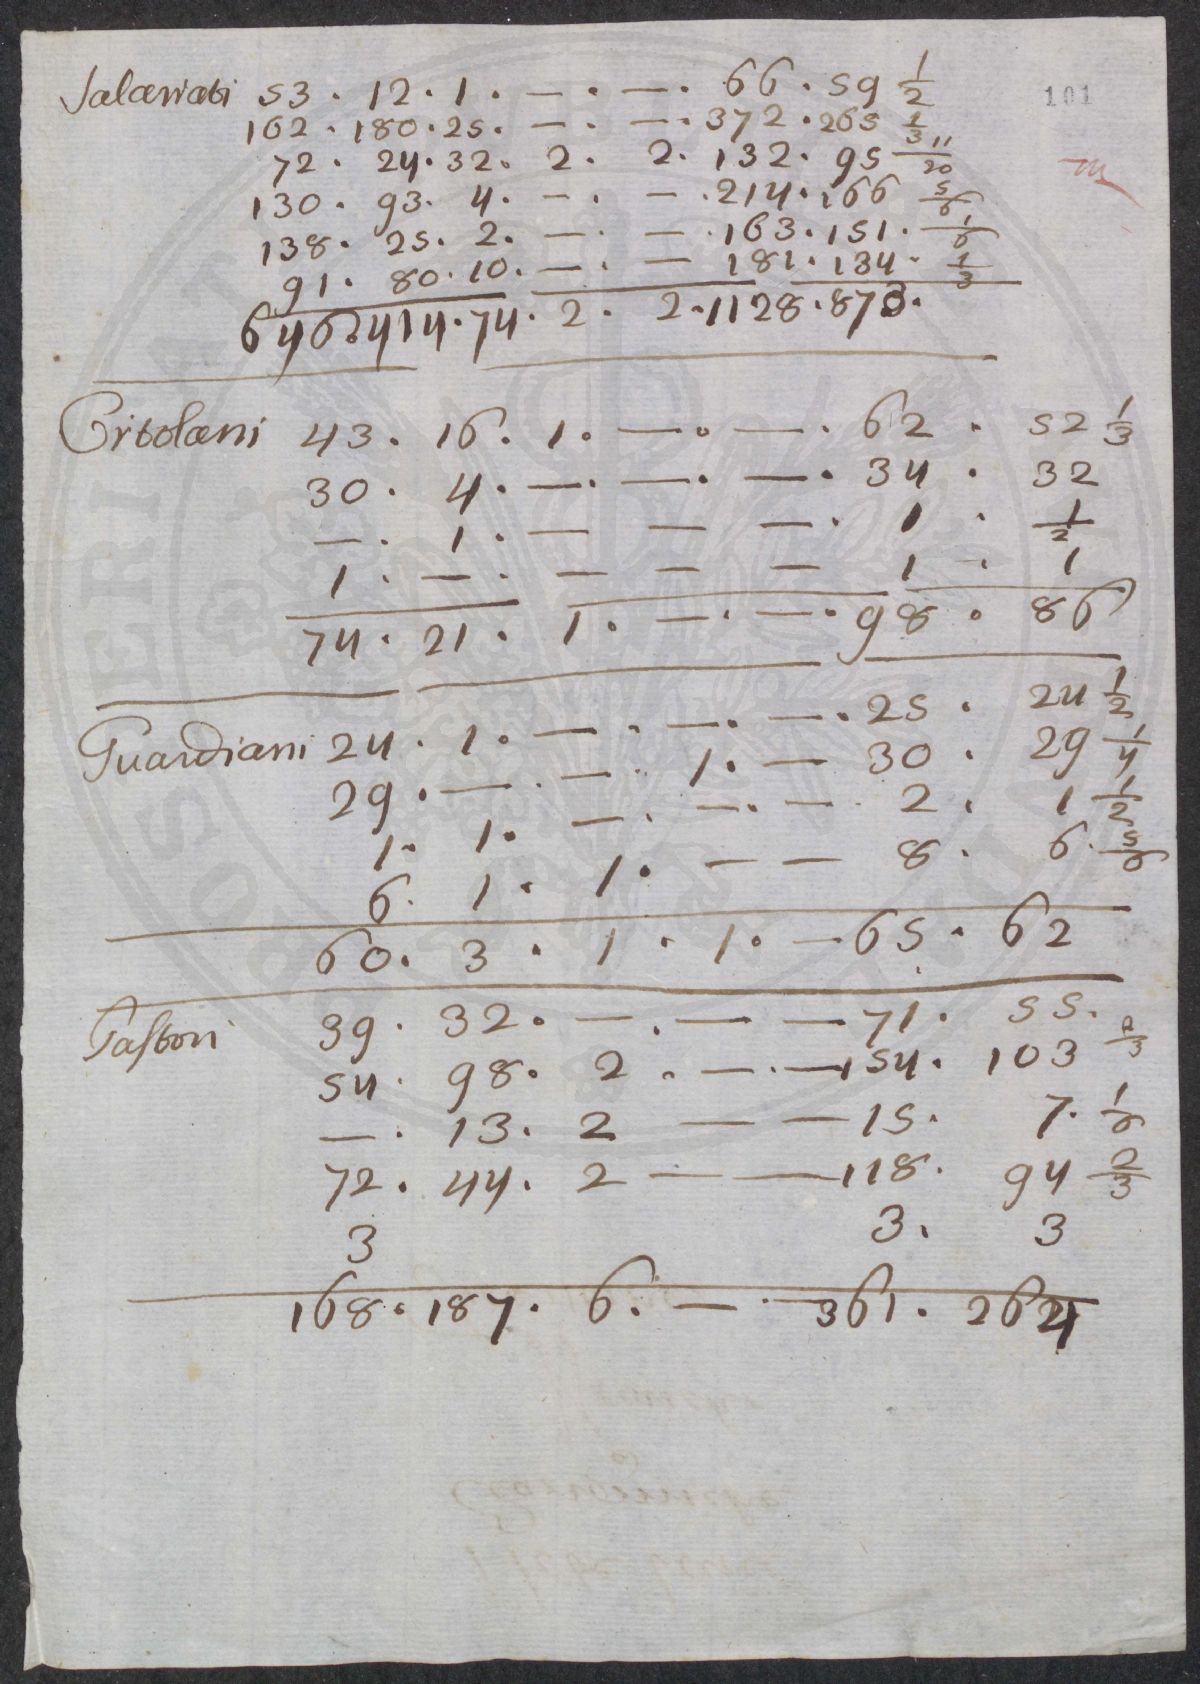 101
Salariati 53 . 12 . 1 . — . — . 66 . 59 1/2
162 . 180 . 25 . — . — . 372 . 265 1/3
72 . 24 . 32 . 2 . 2 . 132 . 95 11/20
130 . 93 . 4 . — . — . 214 . 166 5/6
138 . 25 . 2 . — . — . 163 . 151 . 1/6
91 . 80 . 10 . — . — 181 . 134 . 1/3
646 . 414 . 74 . 2 . 2 . 1128 . 873 .
Ortolani 43 . 16 . 1 . — . — . 62 . 52 1/3
30 . 4 . — . — . — . 34 . 32
— . 1 . — — — . 1 . 1/2
1 . — . — — — 1 . 1
74 . 21 . 1 . — . — . 98 . 86
Guardiani 24 . 1 . — . — . — . 25 . 24 1/2
29 . — . — . 1 . — 30 . 29 1/4
1 . 1 . — . — . — . 2 . 1 1/2
6 . 1 . 1 . — — 8 . 6 . 5/6
60 . 3 . 1 . 1 . — 65 . 62
Pastori 39 . 32 . — . — — 71 . 55 .
54 . 98 . 2 . — . — 154 . 103 2/3
— . 13 . 2 — — 15 . 7 . 1/6
72 . 44 . 2 — — 118 . 94 2/3
3 3 . 3
168 . 187 . 6 . — . — 361 . 264